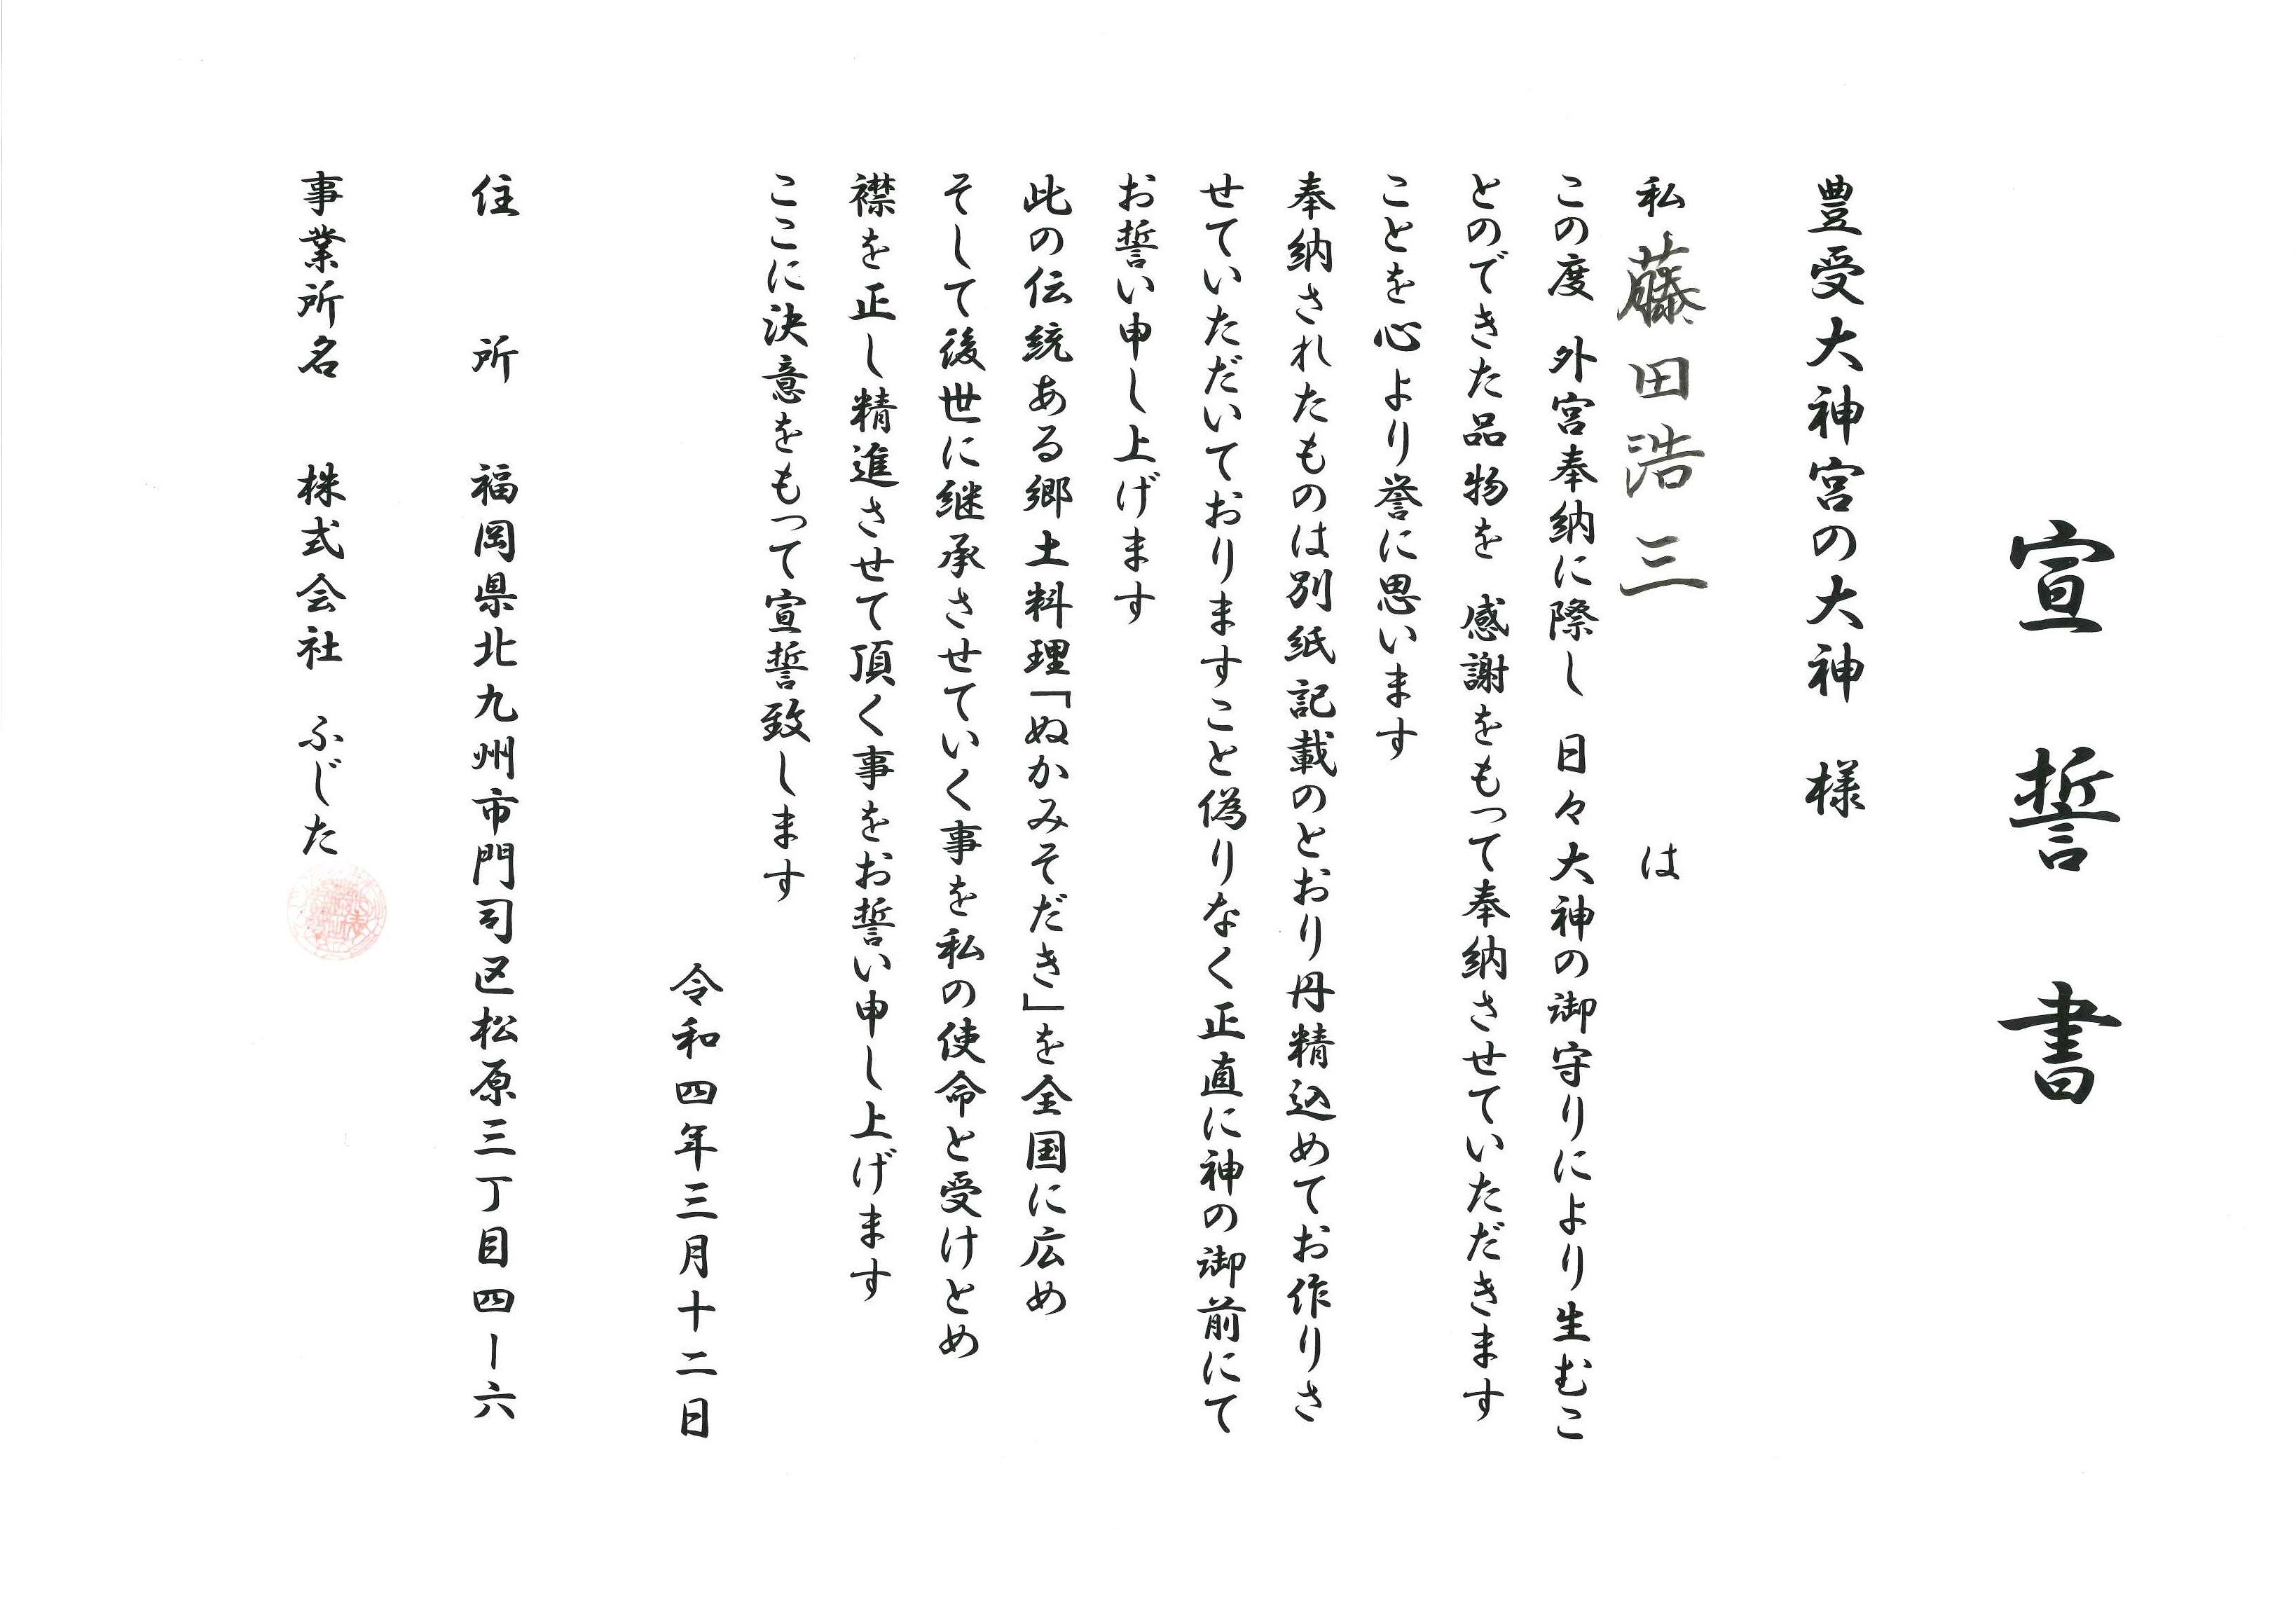 宣誓書
豊受大神宮の大神 様
私 藤田浩三 は
この度 外宮奉納に際し 日々大神の御守りにより生むこ
とのできた品物を 感謝をもって奉納させていただきます
ことを心より誉に思います
奉納されたものは別紙記載のとおり丹精込めてお作りさ
せていただいておりますこと偽りなく正直に神の御前にて
お誓い申し上げます
此の伝統ある郷土料理「ぬかみそだき」を全国に広め
そして後世に継承させていく事を私の使命と受けとめ
襟を正し精進させて頂く事をお誓い申し上げます
ここに決意をもって宣誓致します
令和四年三月十二日
住所 福岡県北九州市門司区松原三丁目四ー六
事業所名 株式会社 ふじた